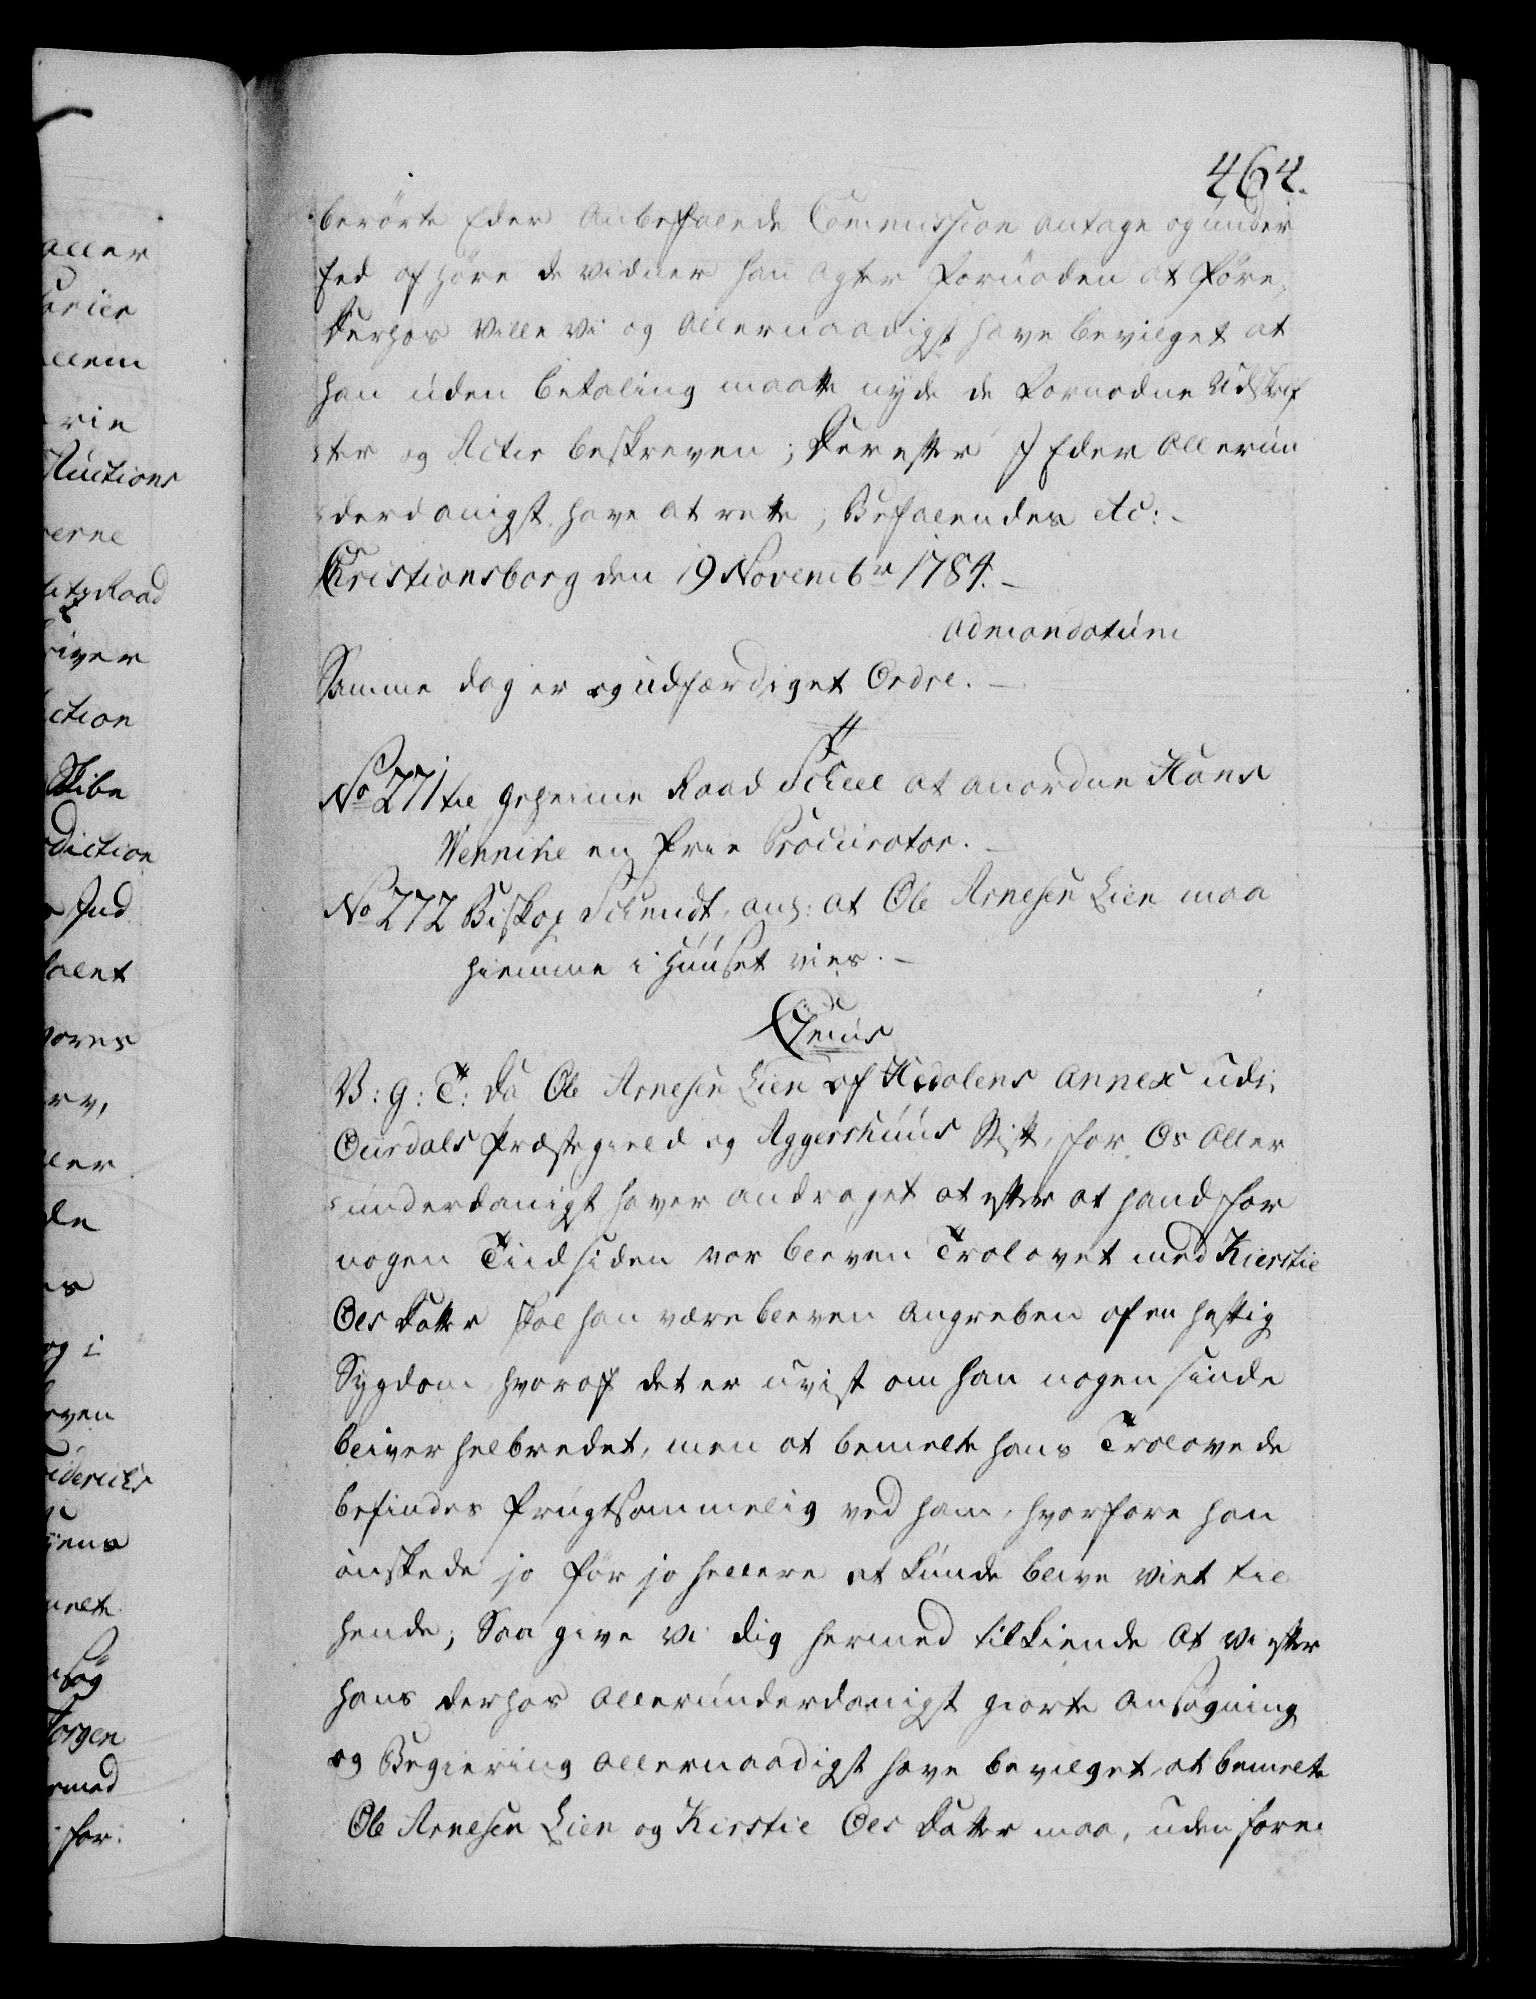 464.
berörte Eder Anbefalede Commission antage og under
Eed afhöre de Vidner han agter fornöden at före,
Derhos Ville Vi og Allernaadigst have bevilget at
han uden betaling maatte nyde de fornödne Udskrif
ter og Acter beskreven; Derefter I Eder Allerun
derdanigst have at rette, Befalendes etc:
Christiansborg den 19 Novembr 1784.
admandatum
Samme dag er og udfærdiget Ordre.
No 271 til geheime Raad Scheel at anordne Hans
Wennike en frie Procurator.
No 272 Biskop Schmidt, ang: at Ole Arnesen Lien maa
hiemme i Huuset vies.
V: G: T: Da Ole Arnesen Lien af Hedalens Annex udi
Ourdals Præstegield og Aggershuus Stift, for Os Aller
underdanigst haver andraget at efter at hand for
nogen Tiid siden var bleven Trolovet med Kierstie
Oles Datter skal han være bleven Angreben af en heftig
Sygdom, hvoraf det er uvist om han nogensinde
bliver helbredet, men at bemelte hans Trolovede
befindes frugtsommelig ved ham, hvorfore han
önskede jo för jo hellere at kunde blive viet til
hende; Saa give Vi dig hermed tilkiende At Vi efter
hans derhos Allerunderdanigst giorte Ansögning
og Begiering Allernaadigst have bevilget, at bemelte
Ole Arnesen Lien og Kirstie Oles Datter maa, uden fore
aller
Auctions
erne
Raad
iver
ction
Skibe
diction
Ind
vores
ler
de
og i
even
Friderichs
melte
Jörgen
ermed
for